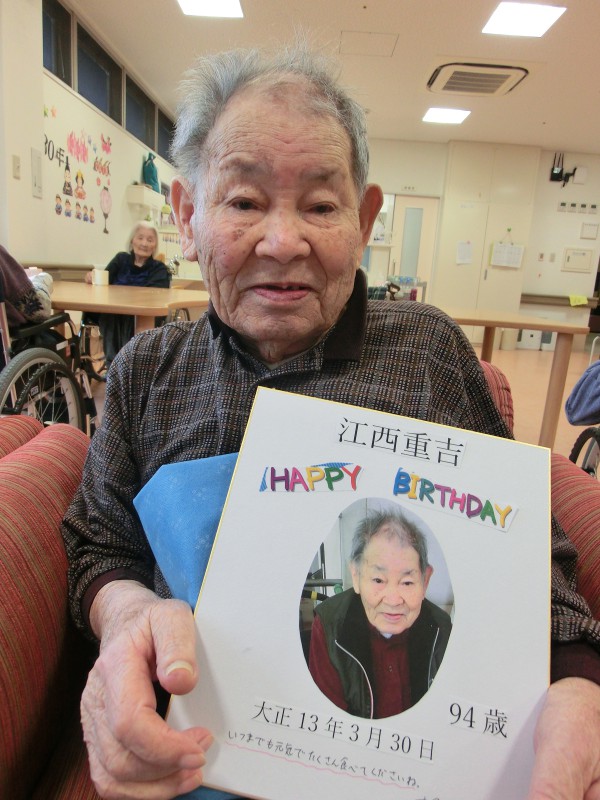 30年
江西重吉
HAPPY BIRTHDAY
94歳
大正13年3月30日
いつまでも元気でたくさん食べてくださいね。